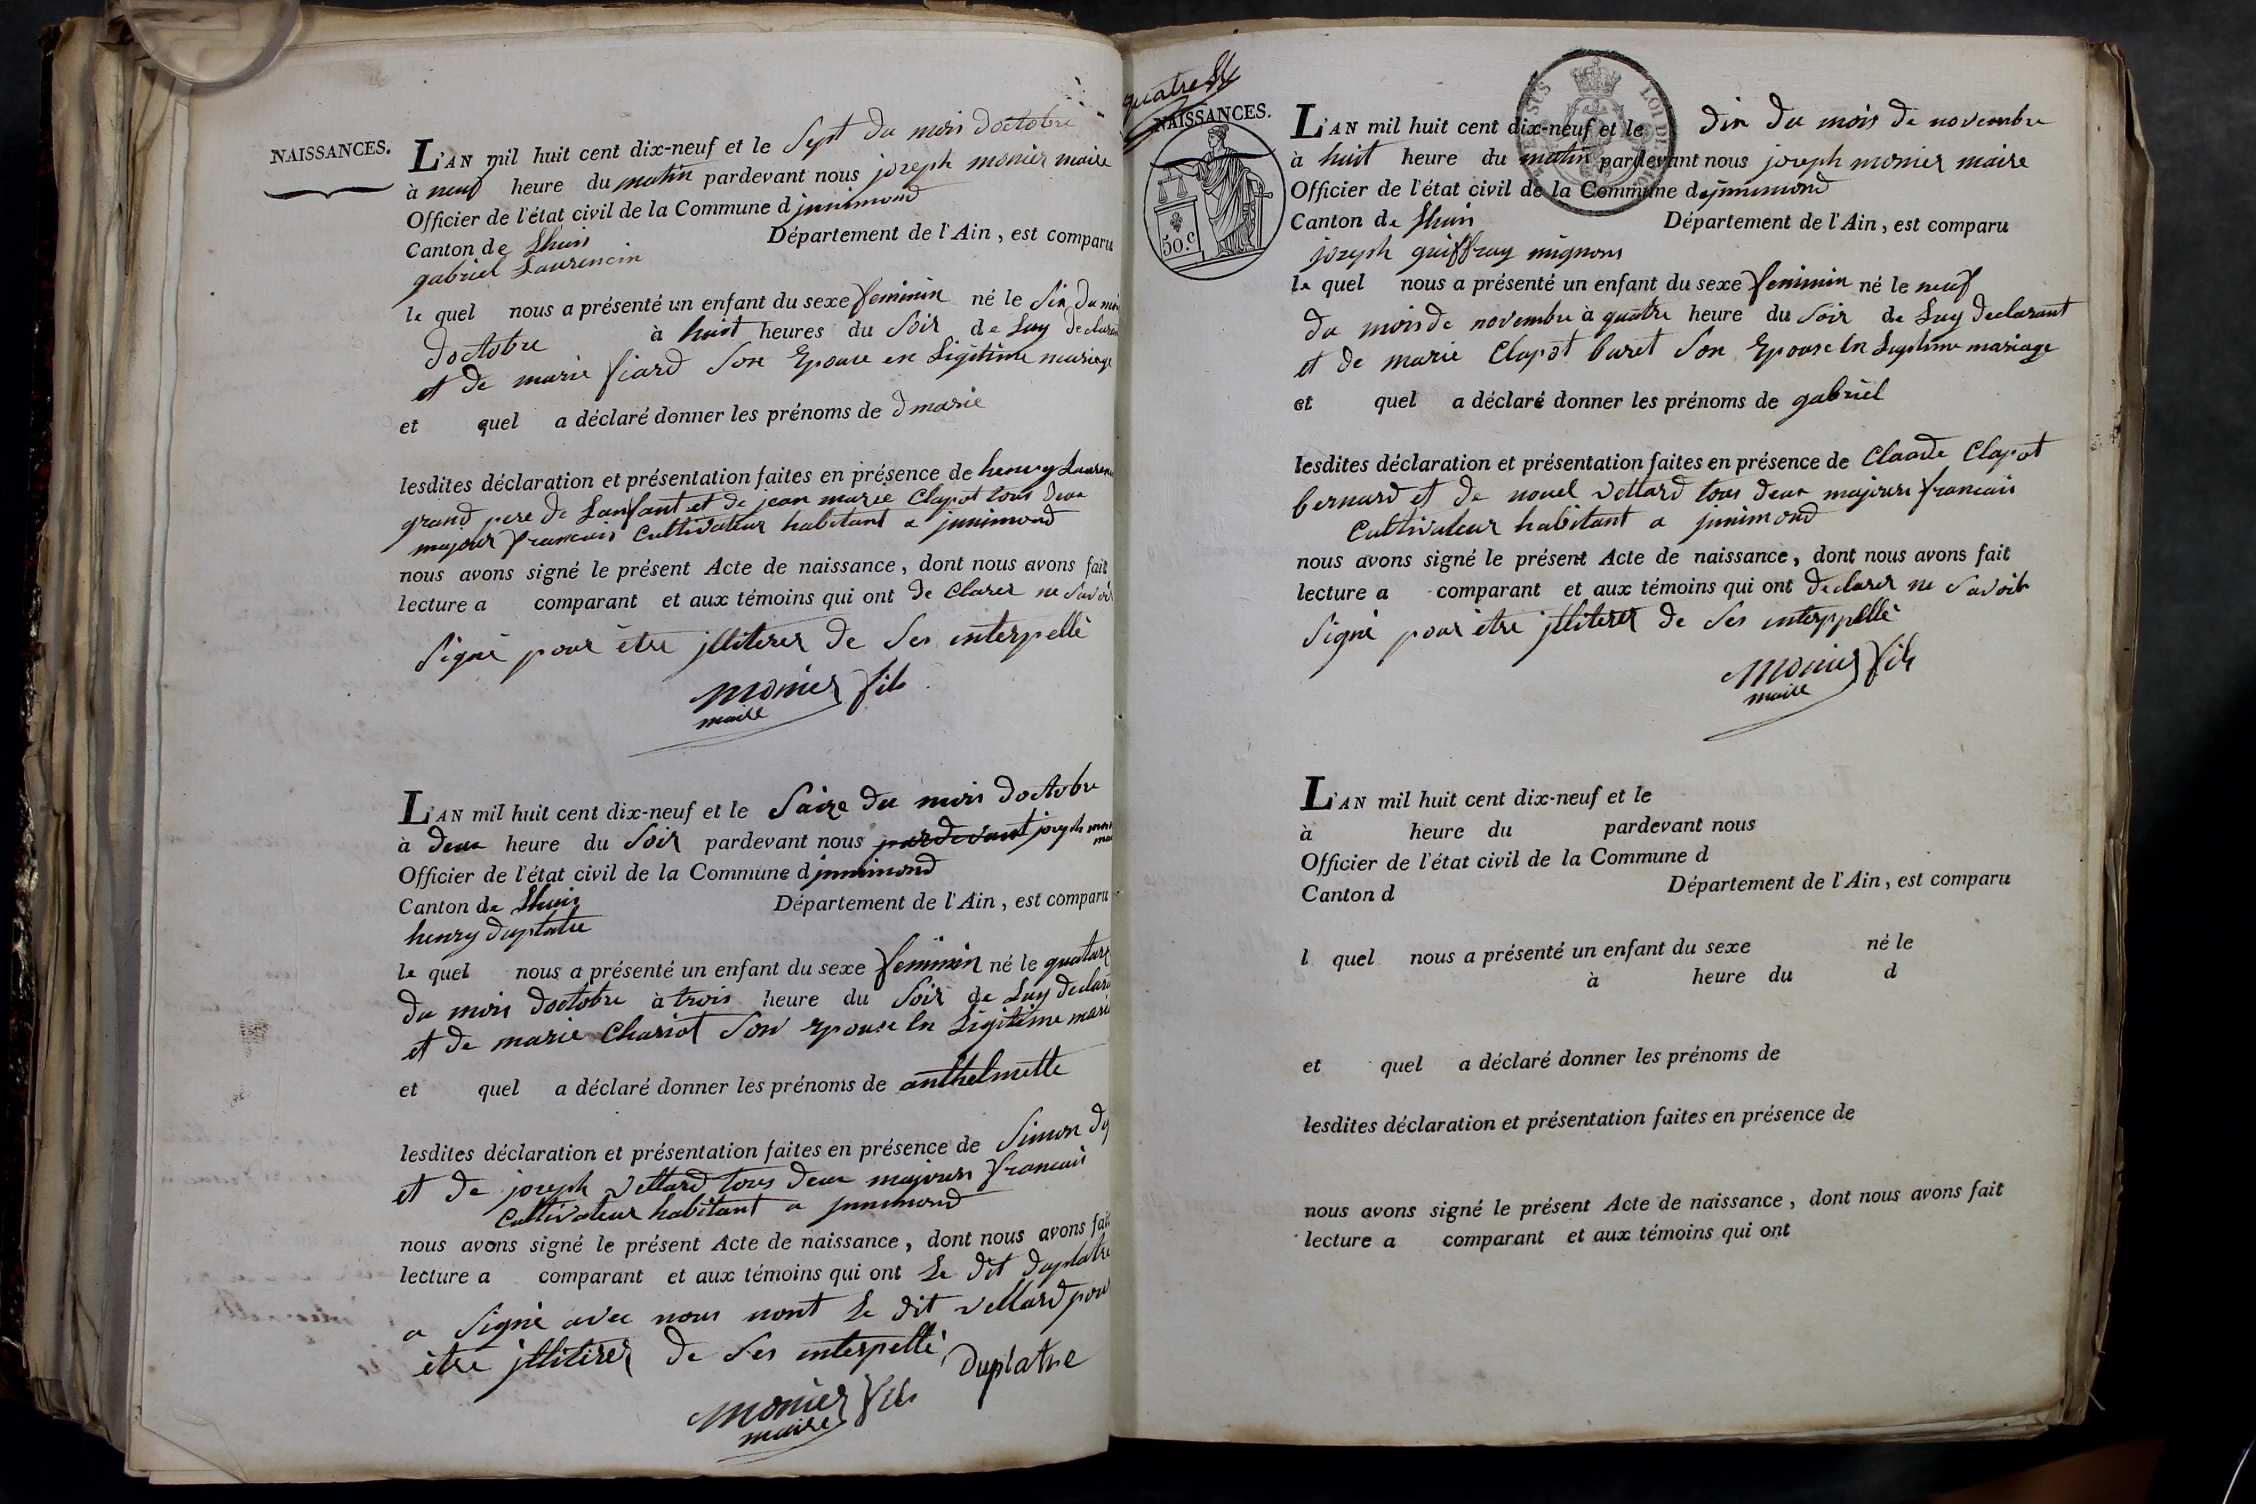 NAISSANCES.
L'AN mil huit cent dix-neuf et le Sept du mois doctobre
à neuf heure du matin pardevant nous joseph monier maire
Officier de l'état civil de la Commune d jnnimond
Canton de Lhuis Département de l'Ain, est comparu
gabriel Laurencin
le quel nous a présenté un enfant du sexe feminin né le Six du mois
doctobre à huit heures du Soir de Luy declarant
et de marie fiard Son Epouse en Ligitime mariage
et quel a déclaré donner les prénoms de d marie
lesdites déclaration et présentation faites en présence de henry Lauren
grand pere de Lanfant et de jean marie Clapot tous deux
majour francais Cultivateur habitant a jnnimond
nous avons signé le présent Acte de naissance, dont nous avons fait
lecture a comparant et aux témoins qui ont de Clarer ne Savoir
Signé pour être jlliterer de Ses interpellé
monier fils
maire
L'AN mil huit cent dix-neuf et le Saize du mois doctobre
à deux heure du Soir pardevant nous pardevant joseph mon
Officier de l'état civil de la Commune d jnnimond
Canton de Lhuis Département de l'Ain, est comparu
henry duplatre
le quel nous a présenté un enfant du sexe feminin né le quatorz
du mois doctobre à trois heure du Soir de Luy declara
et de marie Chariot Son Epouse En Ligitime maria
et quel a déclaré donner les prénoms de anthelmette
lesdites déclaration et présentation faites en présence de Simon
et de joseph vettard tous deux majours francais
Cultivateur habitant a jnnimond
nous avons signé le présent Acte de naissance, dont nous avons fait
lecture a comparant et aux témoins qui ont Le dit duplatre
a Signé avec nous nont Le dit vettard pour
être jlliterer de Ses interpellé duplatre
monier fils
maire
quatre
NAISSANCES.
50.c
L'AN mil huit cent dix-neuf et le dix du mois de novembre
à huit heure du matin pardevant nous joseph monier maire
Officier de l'état civil de la Commune de jnnimond
Canton de Lhuis Département de l'Ain, est comparu
joseph guiffray mignons
le quel nous a présenté un enfant du sexe feminin né le neuf
du mois de novembre à quatre heure du Soir de Luy declarant
et de marie Clapot buret Son Epouse En Legitime mariage
et quel a déclaré donner les prénoms de gabriel
lesdites déclaration et présentation faites en présence de Claude Clapot
bernard et de nouel vettard tous deux majours francais
Cultivateur habitant a jnnimond
nous avons signé le présent Acte de naissance, dont nous avons fait
lecture a comparant et aux témoins qui ont declarer ne Savoir
Signé pour être jlliterer de Ses interppellé
monier fils
maire
L'AN mil huit cent dix-neuf et le
à heure du pardevant nous
Officier de l'état civil de la Commune d
Canton d Département de l'Ain, est comparu
l quel nous a présenté un enfant du sexe né le
à heure du d
et quel a déclaré donner les prénoms de
lesdites déclaration et présentation faites en présence de
nous avons signé le présent Acte de naissance, dont nous avons fait
lecture a comparant et aux témoins qui ont